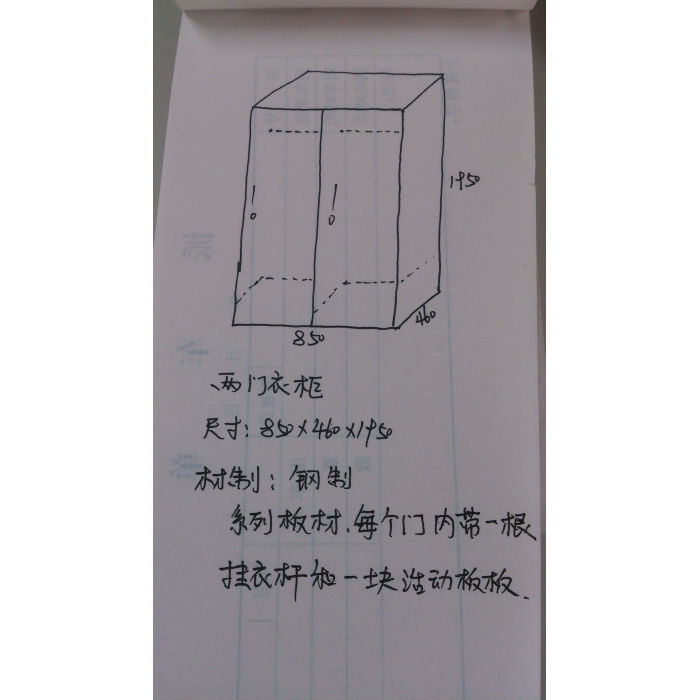 1950
460
850
两门衣柜
尺寸：850×460×1950
材制：钢制
系列板材、每个门内带一根
挂衣杆和一块活动板板.